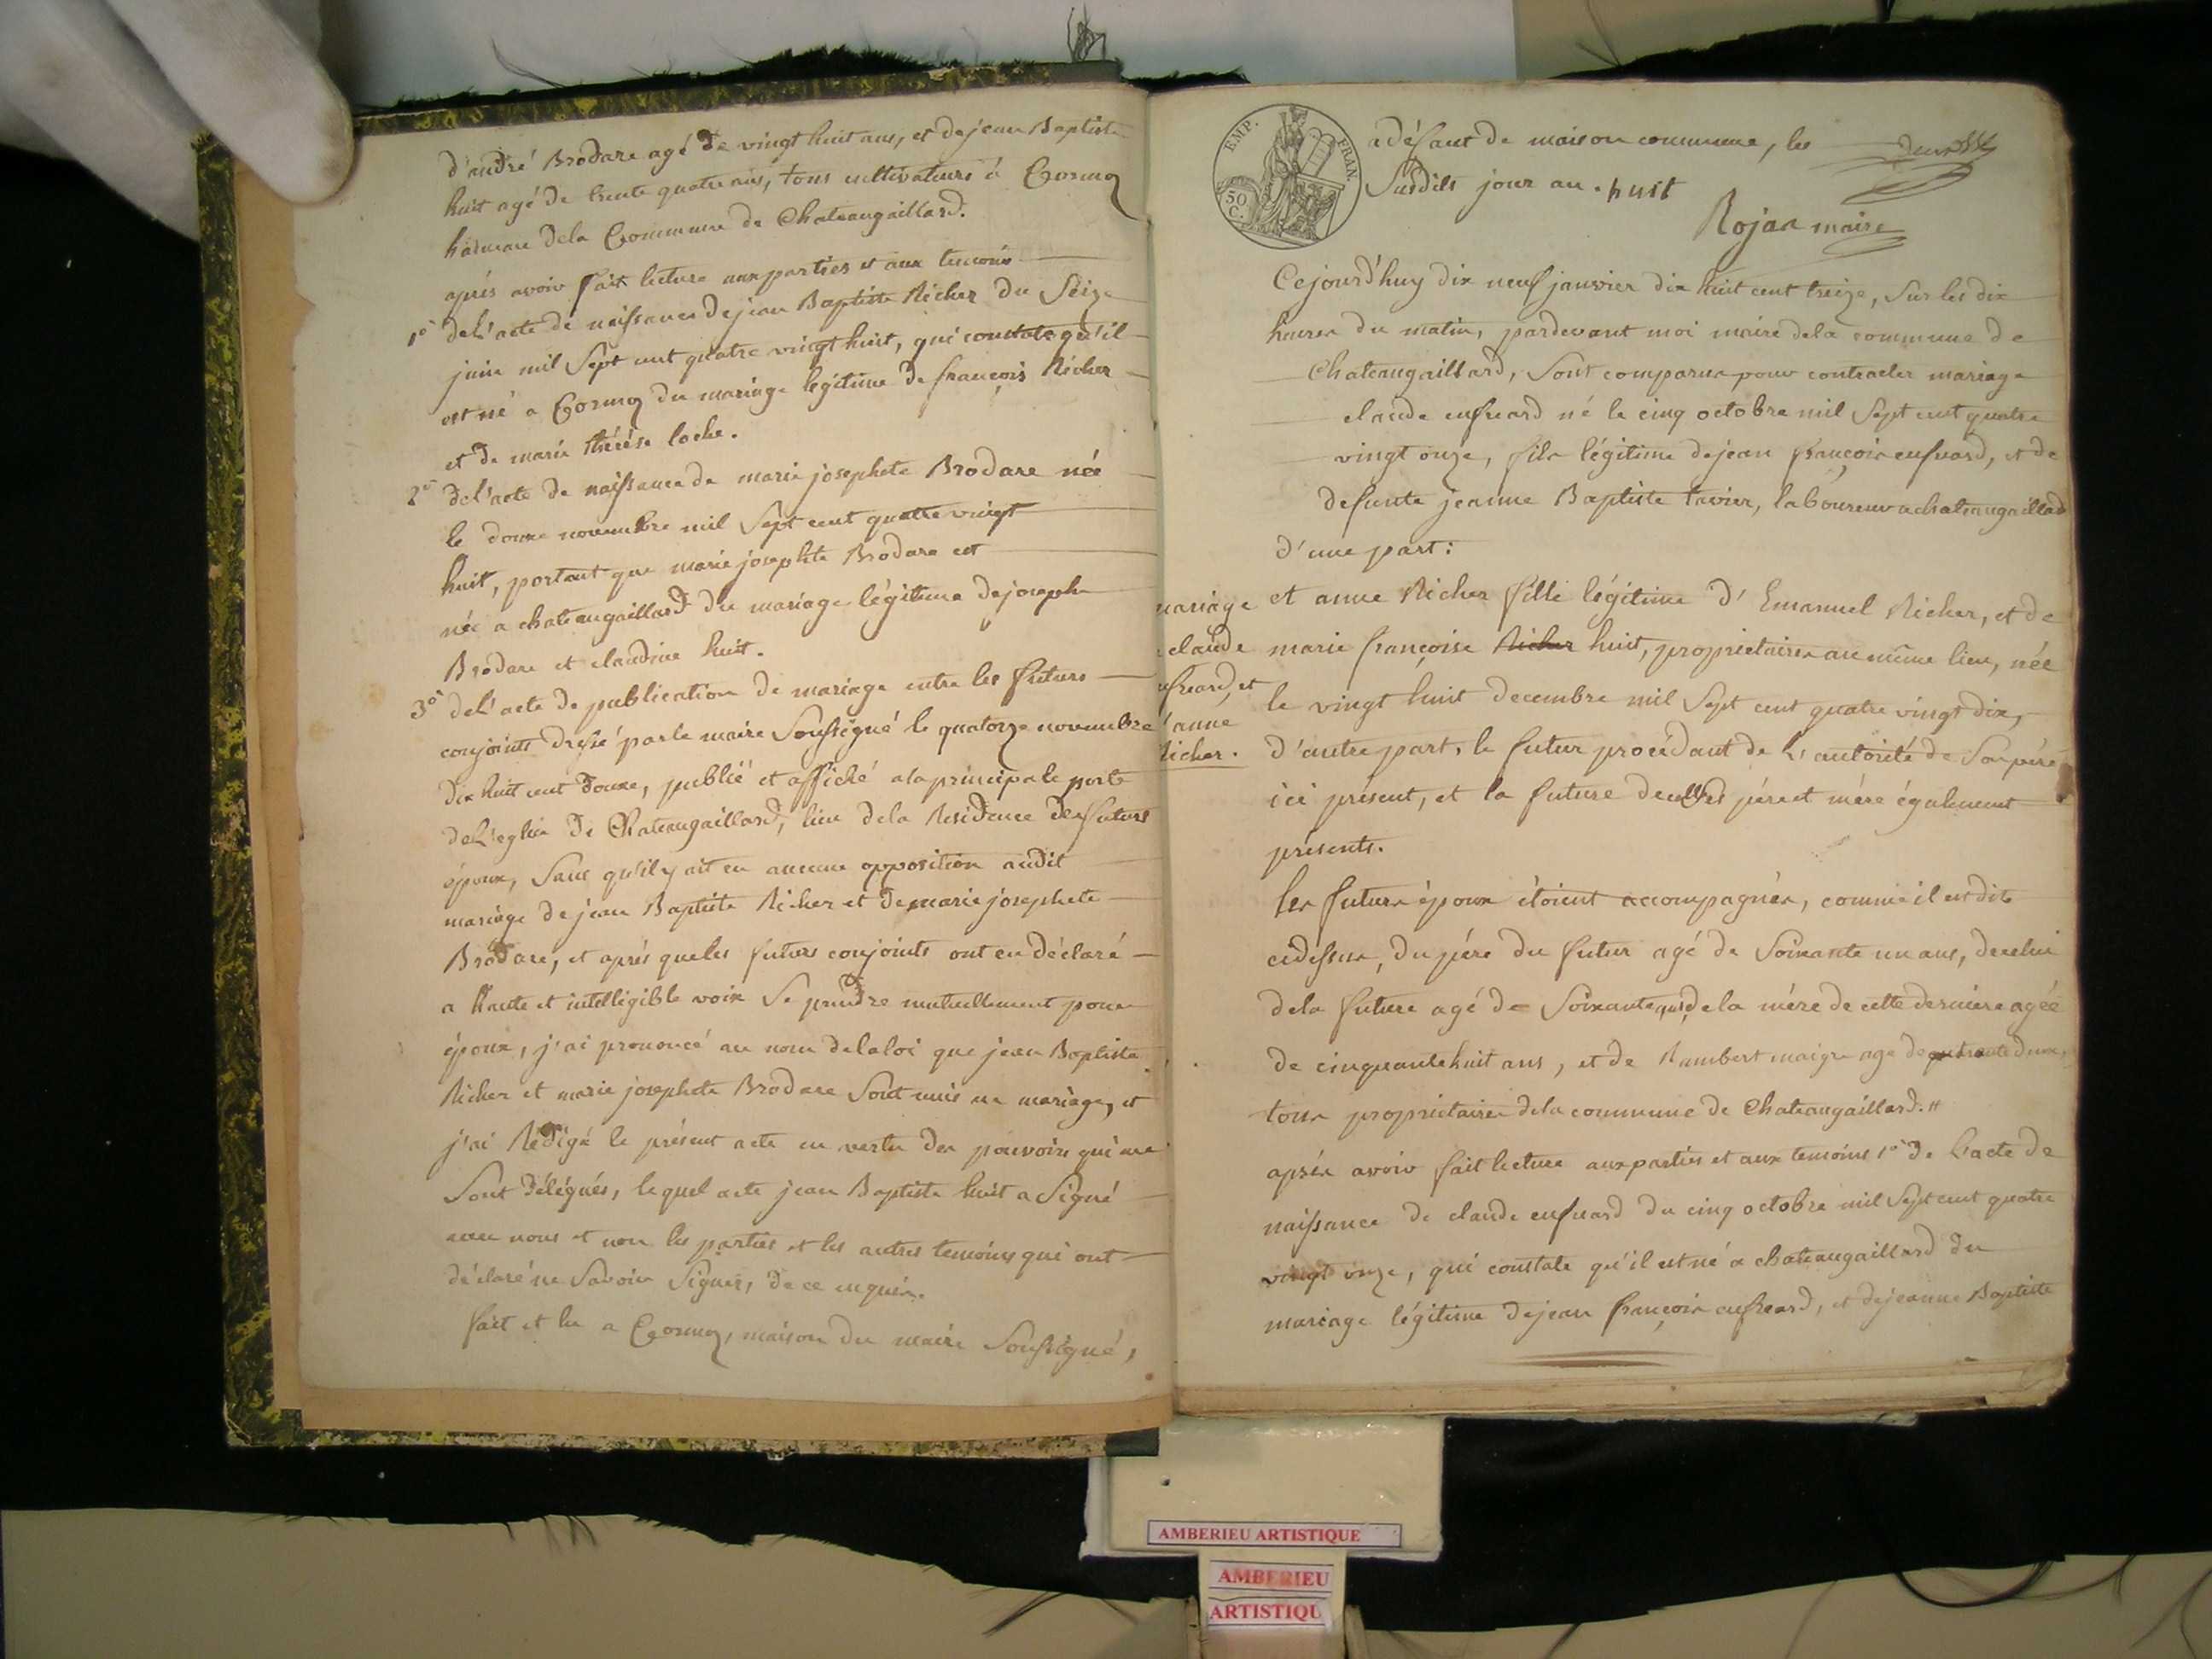 d'andré Brodare agé de vingt huit ans, et de jean Baptiste
huit agé de trente quatre ans, tous cultivateurs à Cormoz
hameau dela Commune de Chateaugaillard.
aprés avoir fait lecture aux parties et aux temoins
1º del'acte de naissance de jean Baptiste Richer du Seize
juin mil Sept cent quatre vingt huit, qui constate qu'il
est né a Cormoz du mariage légitime de françois Richer
et de marie thérése loche.
2º del'acte de naissance de marie josephete Brodare née
le douxe novembre mil Sept cent quatre vingt
huit, portant que marie josephte Brodare est
née a chateaugaillard du mariage légitime de joseph
Brodare et claudine huit.
3º del'acte de publication de mariage entre les futurs
conjoints dressé par le maire Soussigné le quatorze novembre
dix huit cent douxe, publié et affiché a la principale porte
del'eglise de Chateaugaillard, lieu dela Residence des futurs
époux, Sans qu'il y ait eu aucune opposition audit
mariage de jean Baptiste Richer et de marie josephete
Brodare, et aprés que les futurs conjoints ont eu déclaré
a haute et intelligible voix Se prendre mutuellement pour
époux, j'ai prononcé au nom dela loi que jean Baptiste
Richer et marie josephete Brodare Sont unis en mariage, et
j'ai Rédigé le présent acte en vertu des pouvoirs qui me
Sont délégués, lequel acte jean Baptiste huit a Signé
avec nous et non les parties et les autres temoins qui ont
déclaré ne Savoir Signer, de ce enquis.
fait et lu a Cormoz, maison du maire Soussigné,
EMP. FRAN.
50 C.
a défaut de maison commune, les
Susdits jour an. huit
Rojaa maire
Cejourd'huy dix neuf janvier dix huit cent treize, Sur les dix
heures du matin, pardevant moi maire dela commune de
Chateaugaillard, Sont comparus pour contracter mariage
claude enfreard né le cinq octobre mil Sept cent quatre
vingt onze, fils légitime de jean françois enfreard, et de
defunte jeanne Baptiste tavier, laboureur a chateaugaillard
d'une part:
mariage
claude
et
anne
Richer.
et anne Richer fille légitime d'Emanuel Richer, et de
marie françoise Richer huit, proprietaires au même lieu, née
le vingt huit decembre mil Sept cent quatre vingt dix,
d'autre part, le futur procédant de l'autorité de Son pére
ici présent, et la future de ses pére et mére également
présents.
les futurs époux étoient accompagnés, comme il est dit
cidessus, du pére du futur agé de Soixante un ans, de celui
dela future agé de Soixante dela mére de cette derniere agée
de cinquante huit ans, et de Rambert maigre agé de
tous proprietaires dela commune de Chateaugaillard.
aprés avoir fait lecture aux parties et aux temoins 1º de l'acte de
naissance de claude enfreard du cinq octobre mil Sept cent quatre
vingt onze, qui constate qu'il est né a chateaugaillard du
mariage légitime de jean françois enfreard, et de jeanne Baptiste
AMBERIEU ARTISTIQUE
AMBERIEU
ARTISTIQU